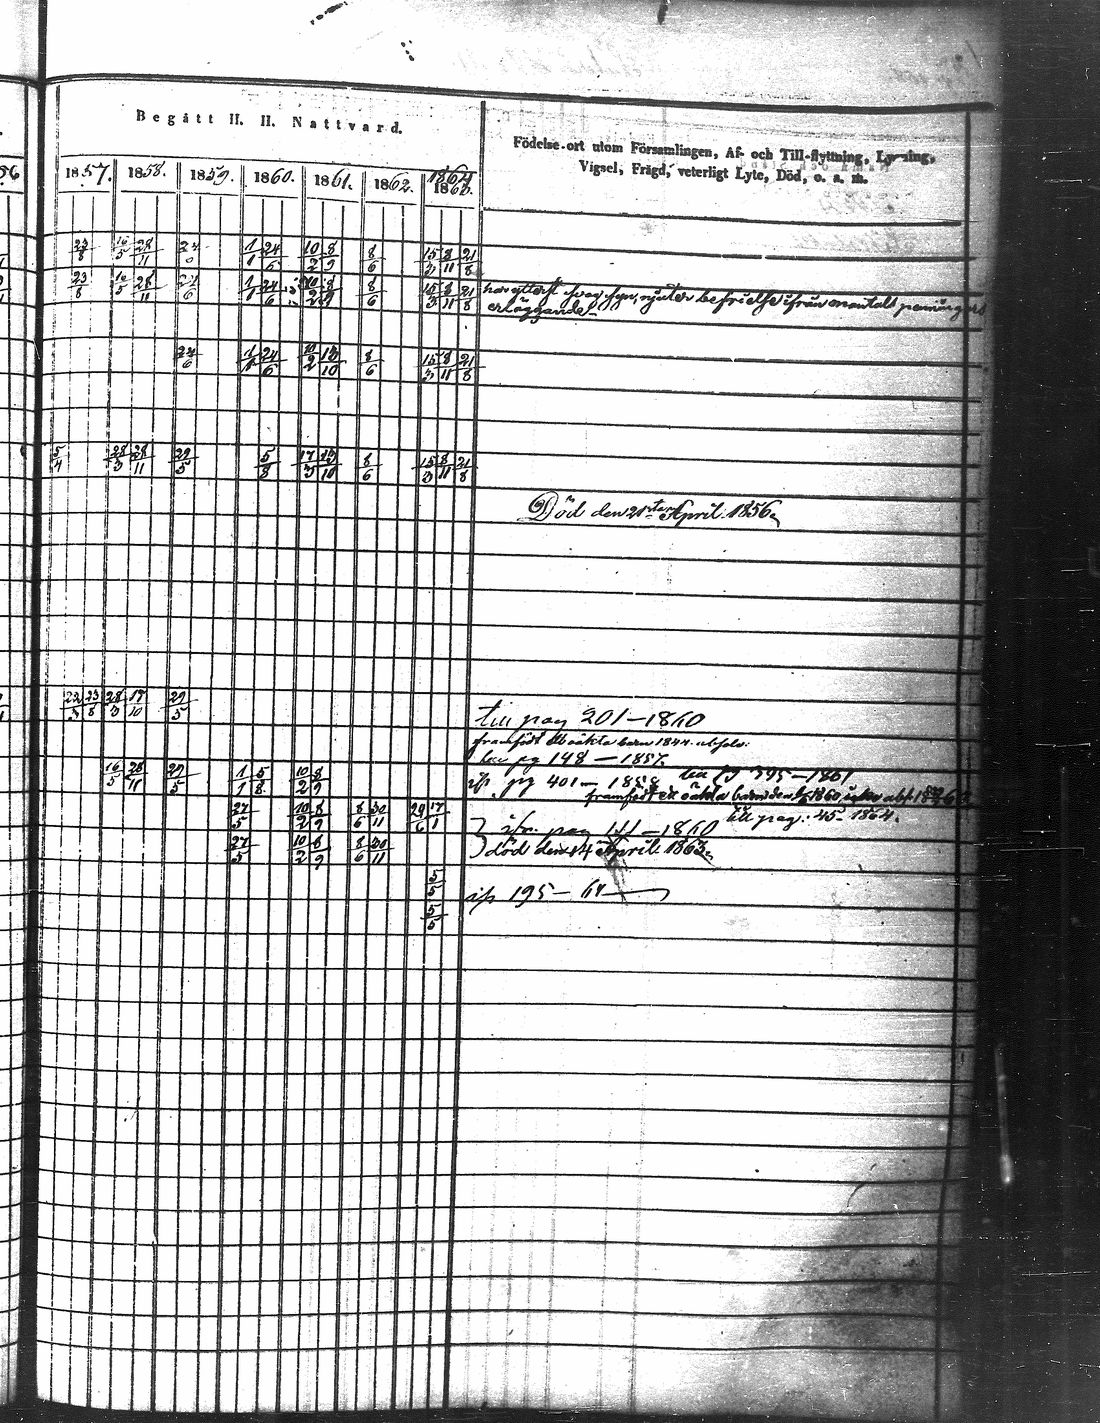 Begått H. H. Nattvard.
Födelse-ort utom Församlingen, Af- och Till-flyttning, Lysning,
Vigsel, Frägd, veterligt Lyte, Död, o. a. m.
56 1857. 1858. 1859. 1860. 1861. 1862. 1864
1863.
23/8 16/5 28/11 24 1/1 24/6 10/2 8/9 8/6 15/3 8/11 21/8
23/8 16/5 28/11 24/6 1/1 24/6 10/2 8/9 8/6 15/3 8/11 21/8 har ytterst svag syn, njuter befrielse ifrån mantals penningars
erläggande
24/6 1/1 24/6 10/2 13/10 8/6 15/3 8/11 21/8
5/4 28/3 28/11 29/5 5/8 17/3 13/10 8/6 15/3 8/11 21/8
Död den 21sta April 1856
22/3 23/8 28/3 17/10 29/5
till pag 201-1860
framfödt oäkta barn 1844
pg 148-1857.
16/5 28/11 29/5 1/1 5/8 10/2 8/9 pg 401- 1858 till pg 395-1861
framfödt ett oäkta barn den 1860
till pag: 45 1864.
27/5 10/2 8/9 8/6 30/11 29/6 17/1 pag 111-1860
27/5 10/2 8/9 8/6 30/11 död den 14 April 1863
5/5 195- 64
5/5